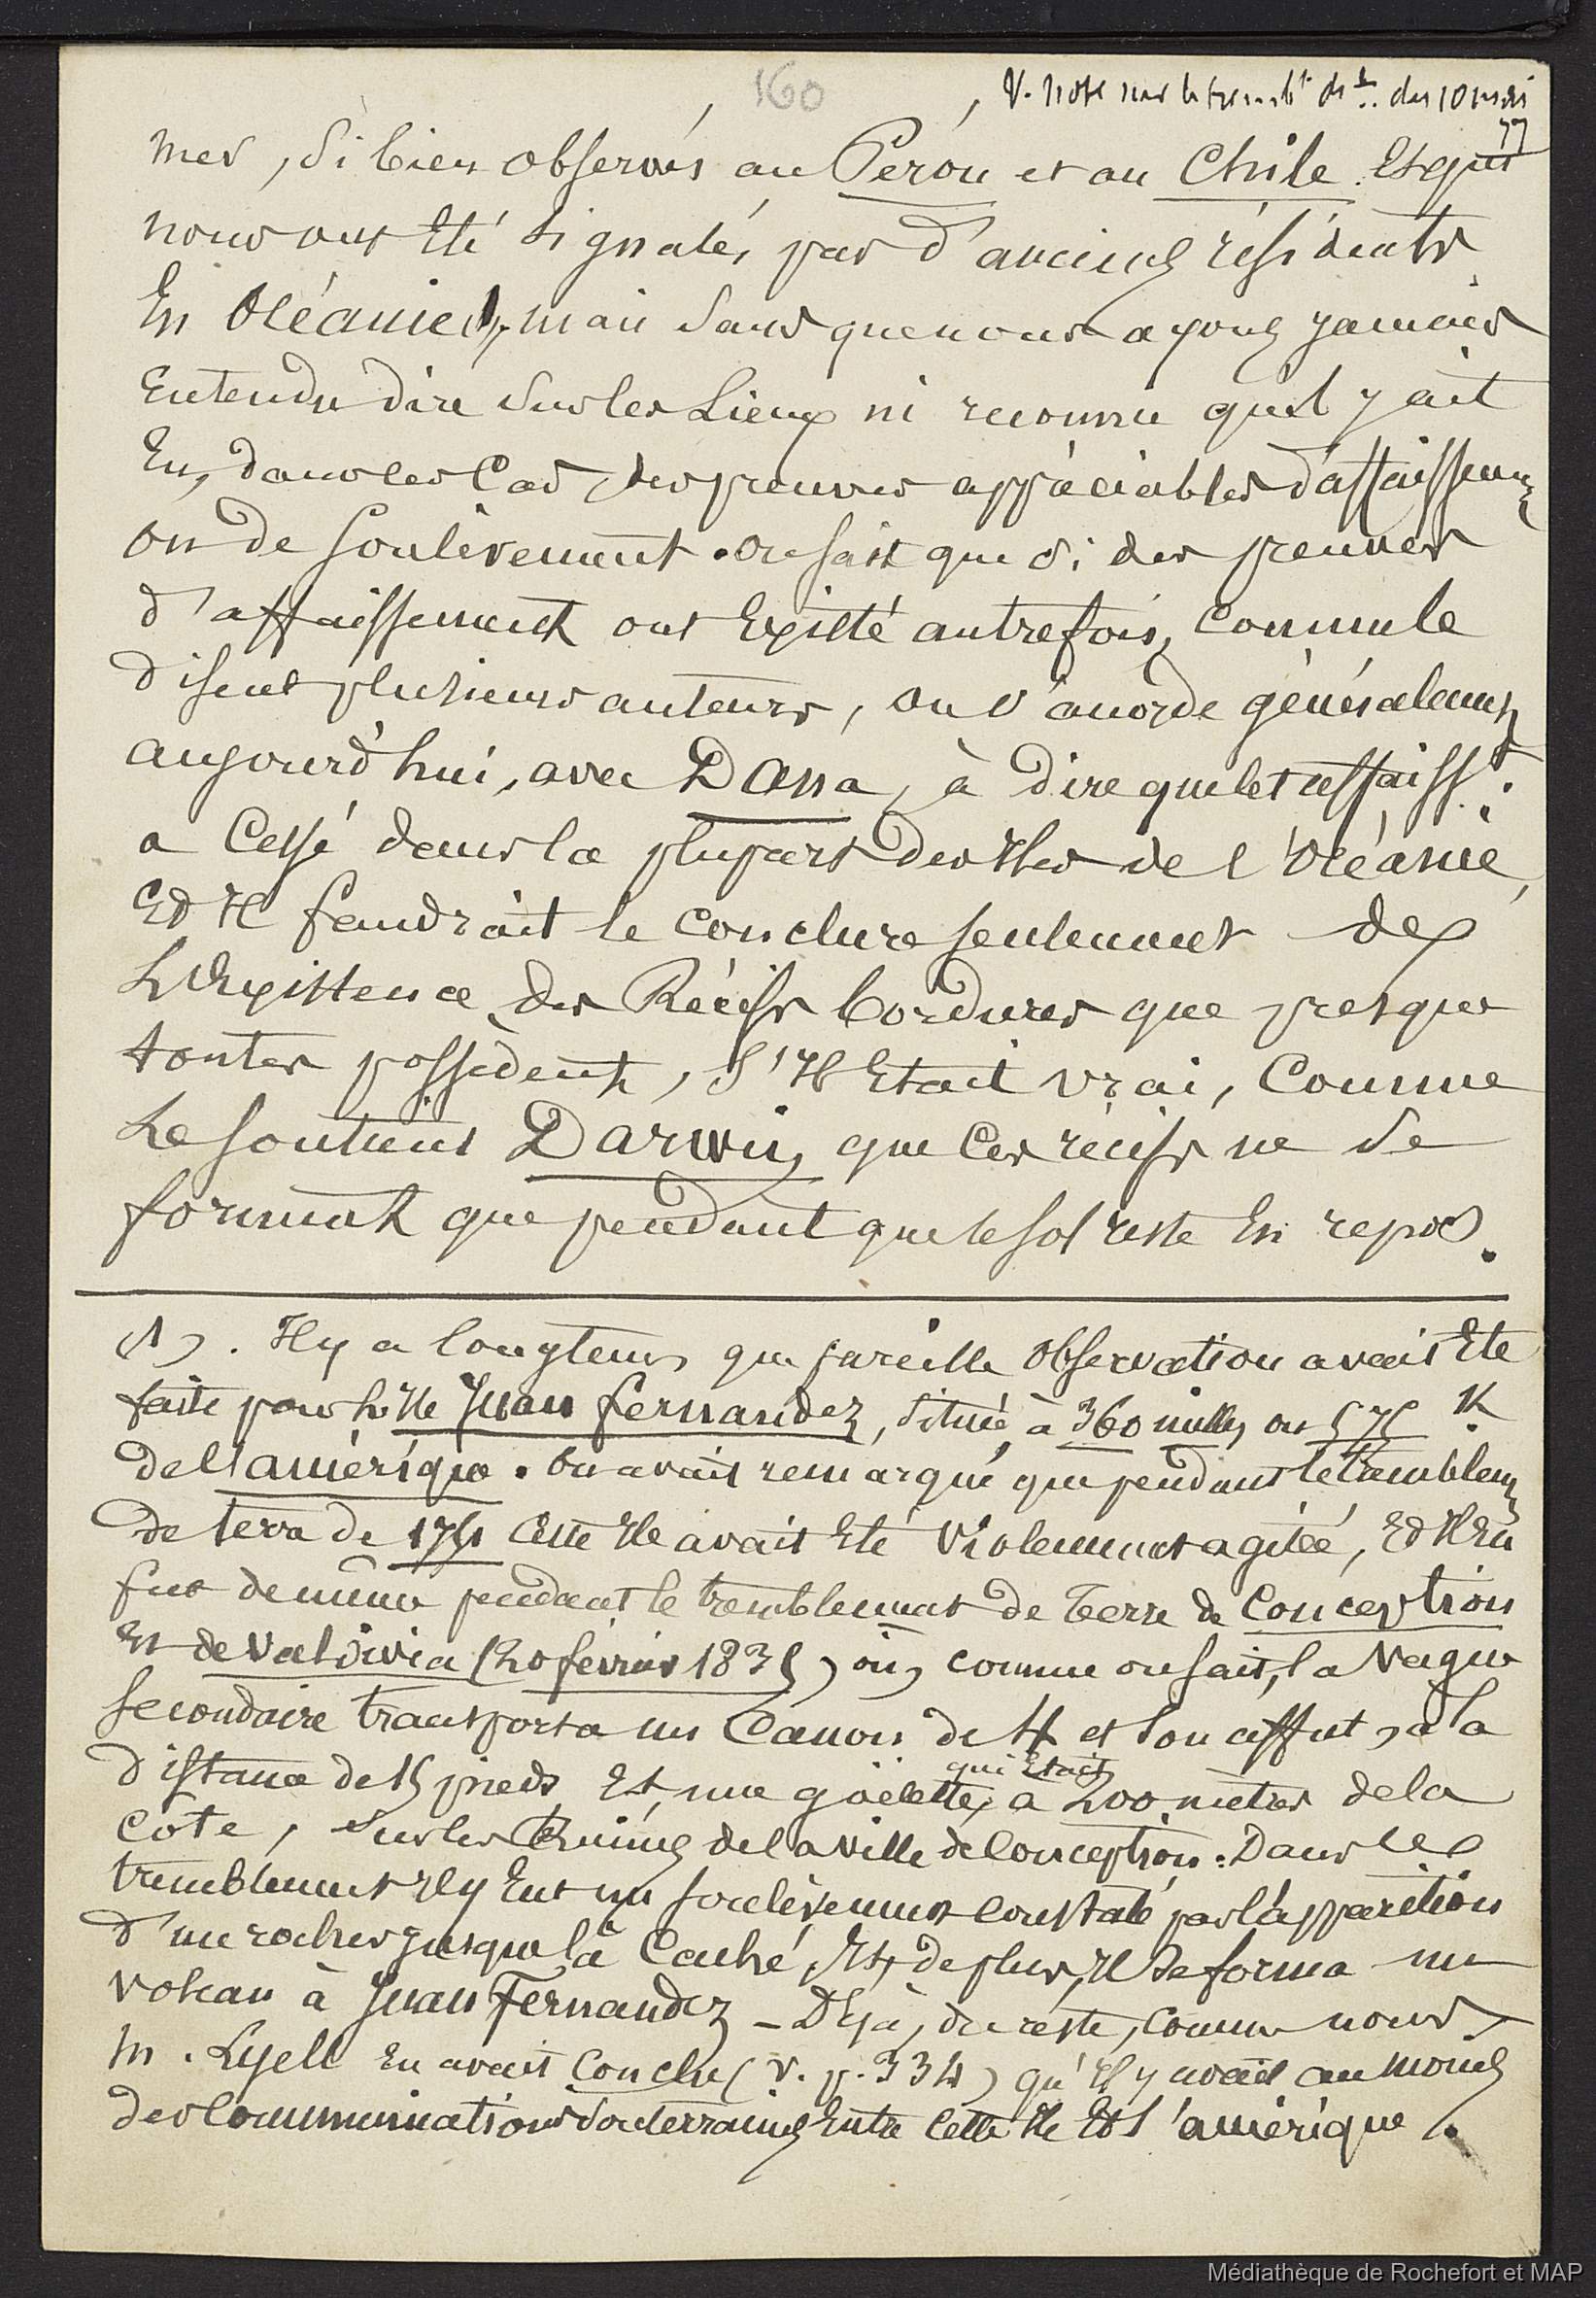 160
V. note sur le trembt. de t.. du 10 mai
77
mer, si bien observés au Pérou et au Chile. Et qui
nous ont été signalés par d'anciens résidents
En Océanie (1), mais sans que nous ayons jamais
Entendu dire sur les Lieux ni reconnu qu'il y ait
Eu, dans ces Cas, des preuves appréciables d'affaissemt
ou de soulèvement. on sait que si des preuves
d'affaissement ont Existé autrefois, comme le
disent plusieurs auteurs, on s'accorde généralement
aujourd'hui, avec Dana, à dire que cet affaisst.
a Cessé dans la plupart des Iles de l'Océanie,
Et Il faudrait le conclure seulement de
L'Existence des Récifs bordures que presque
toutes possèdent, S'Il Etait vrai, Comme
Le soutient Darwin, que Ces récifs ne se
forment que pendant que le sol reste En repos.
(1). Il y a longtems que pareille Observation avait Eté
faite pour l'Ile Juan fernandez, située à 360 milles ou 575 K
de l'amérique. On avait remarqué que pendant le tremblemt
de terre de 1751 Cette Ile avait Eté Violemment agitée, Et Il En
fut de même pendant le tremblement de Terre de Conception
Et de Valdivia (20 février 1835) où, comme on sait, la Vague
secondaire transporta un Canon de 4 et son affut, à la
distance de 15 pieds Et une goëlette,
qui Etait
à 200 mètres de la
Côte, sur les Ruines de la ville de Conception. Dans ce
tremblement Il y Eut un soulèvement constaté par l'apparition
d'un rocher jusque là Caché, Et, de plus, Il se forma un
Volcan à Juan Fernandez – Déjà, du reste, comme nous,
M. Lyell En avait Conclu (V. p. 334) qu'Il y avait au moins
des Communications Souterraines Entre Cette Ile Et l'amérique.
Médiathèque de Rochefort et MAP